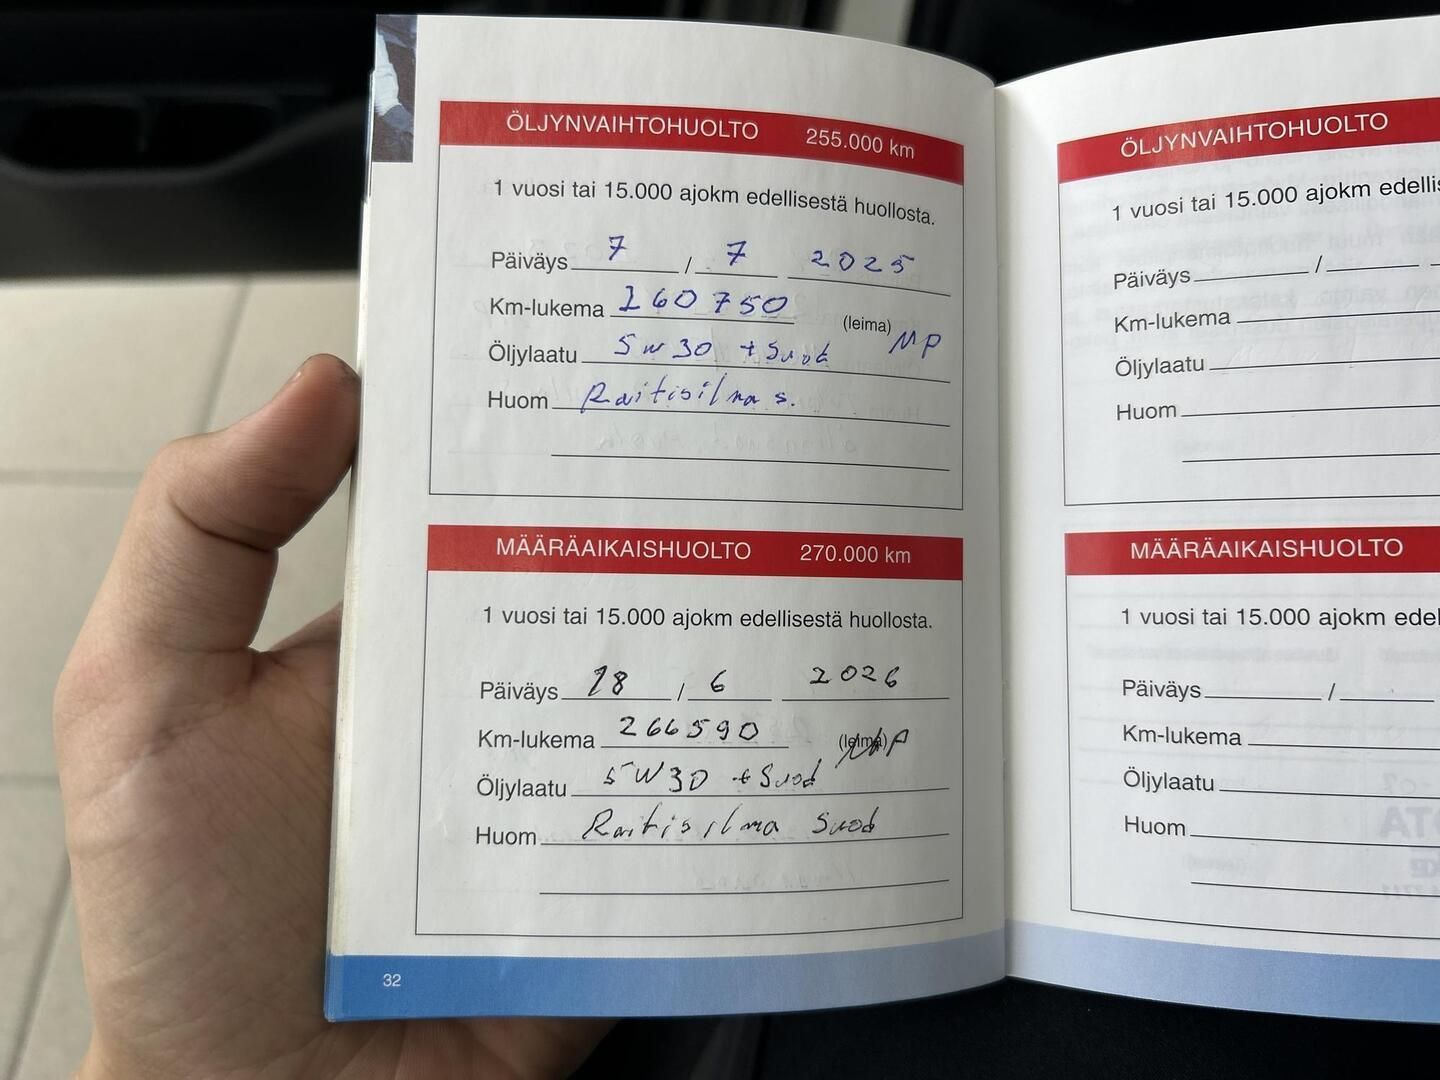 ÖLJYNVAIHTOHUOLTO 255.000 km
1 vuosi tai 15.000 ajokm edellisestä huollosta.
Päiväys 7 / 7 2025
Km-lukema 260750 (leima) MP
Öljylaatu 5W30 + Suod
Huom Raitisilma s.
MÄÄRÄAIKAISHUOLTO 270.000 km
1 vuosi tai 15.000 ajokm edellisestä huollosta.
Päiväys 18 / 6 2026
Km-lukema 266590 (leima) MP
Öljylaatu 5W30 + Suod
Huom Raitisilma Suod
32
ÖLJYNVAIHTOHUOLTO
1 vuosi tai 15.000 ajokm
Päiväys /
Km-lukema
Öljylaatu
Huom
MÄÄRÄAIKAISHUOLTO
1 vuosi tai 15.000 ajokm
Päiväys /
Km-lukema
Öljylaatu
Huom